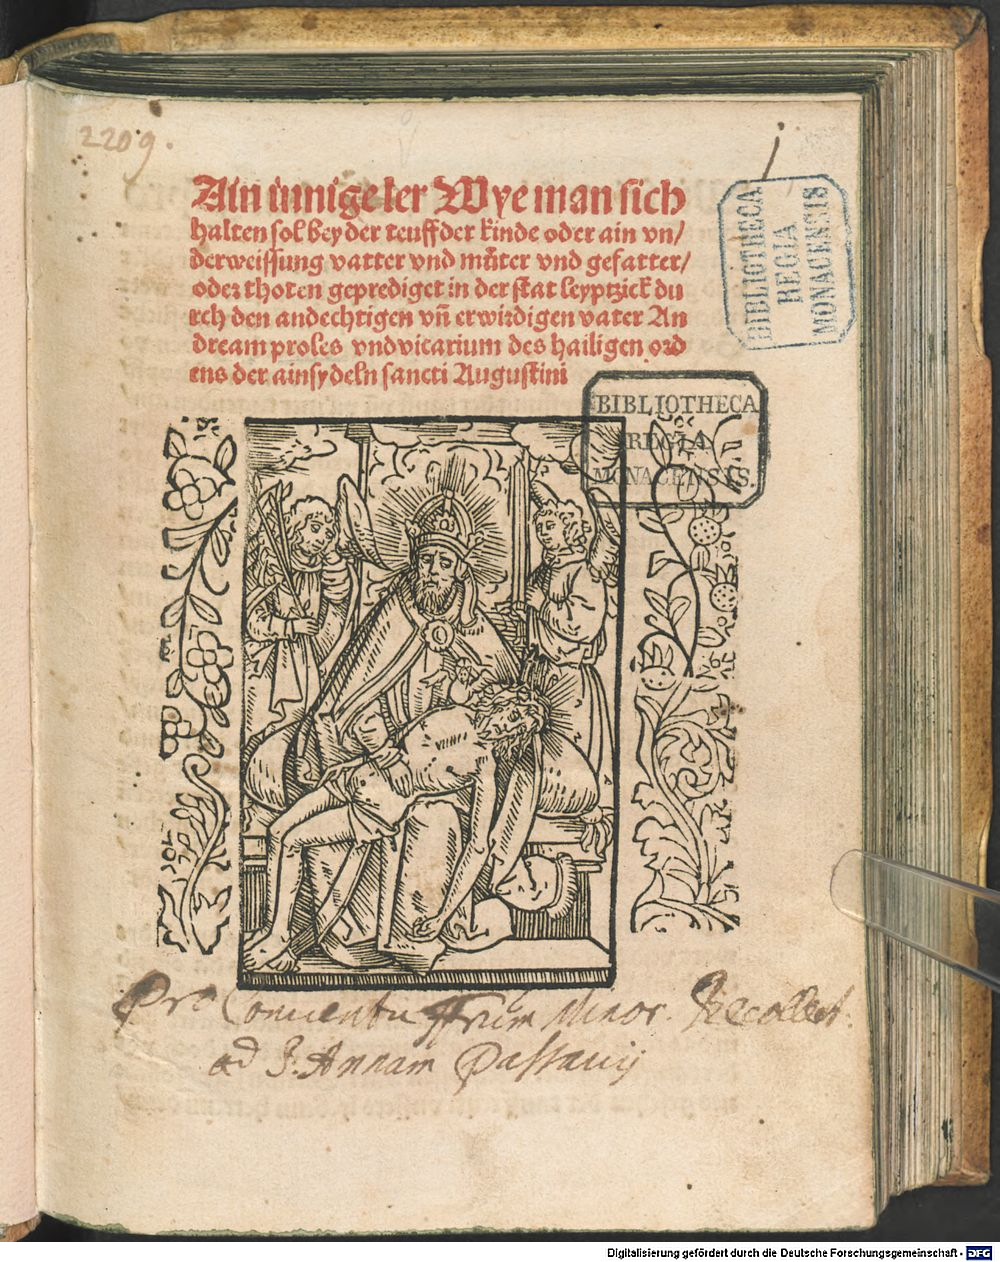 2209.
Ain innige ler Wye man sich
halten sol bey der teuff der kinde oder ain vn/
derweissung vatter vnd můter vnd gefatter/
oder thoten geprediget in der stat leyptzick du
rch den andechtigen vn̄ erwirdigen vater An
dream proles vnd vicarium des hailigen ord
ens der ainsydeln sancti Augustini
BIBLIOTHECA
REGIA
MONACENSIS
BIBLIOTHECA
REGIA
MONACENSIS.
Pro Conuentu ffrum Minor. Recollect.
ad S. Annam Passauij
Digitalisierung gefördert durch die Deutsche Forschungsgemeinschaft - DFG